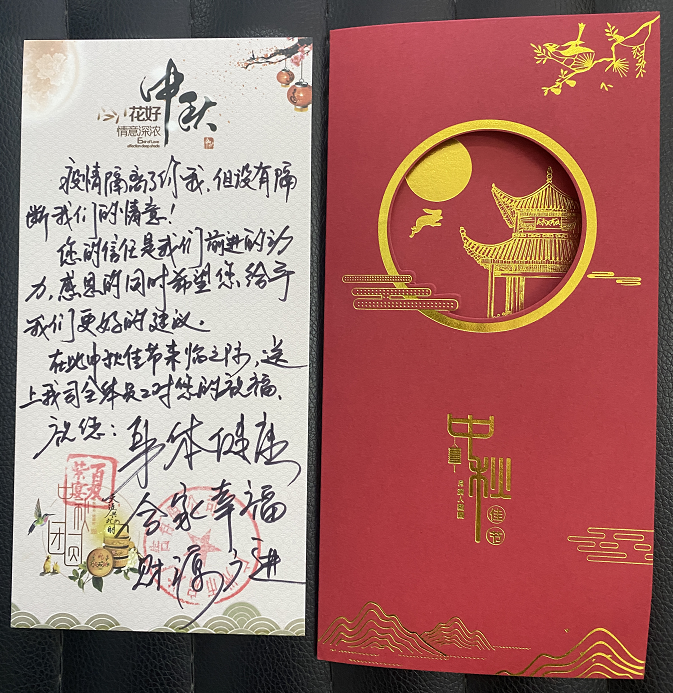 中秋
花好
情意深浓
疫情隔离了你我,但没有隔
断我们的情意!
您的信任是我们前进的动
力,感恩的同时希望您给予
我们更好的建议。
在此中秋佳节来临之际,送
上我司全体员工对您的祝福。
祝您:身体健康
合家幸福
财源广进
中秋
佳节